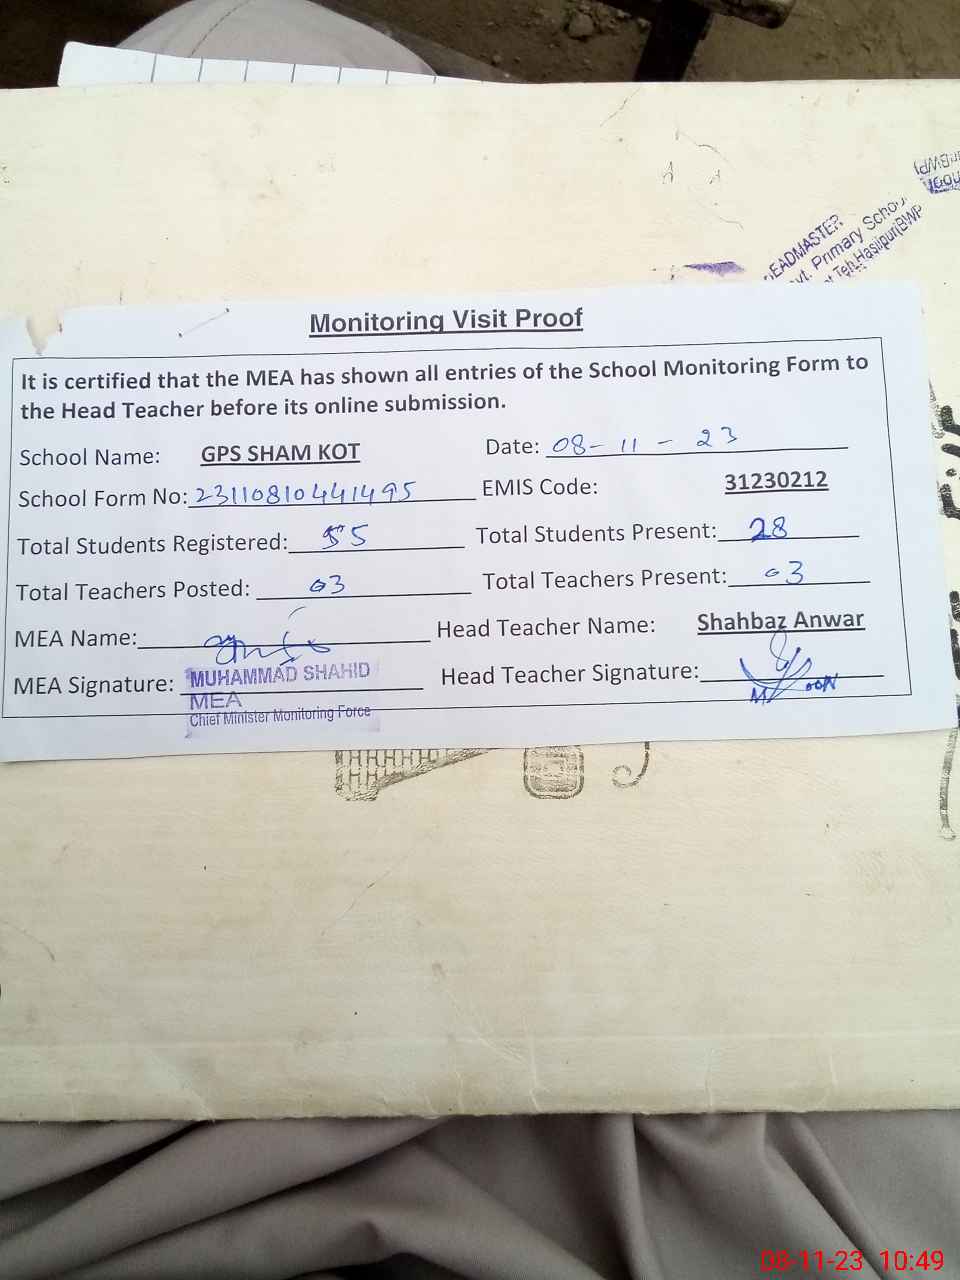 HEADMASTER
Govt. Primary School
Teh. Hasilpur(BWP
Monitoring Visit Proof
It is certified that the MEA has shown all entries of the School Monitoring Form to
the Head Teacher before its online submission.
School Name: GPS SHAM KOT Date: 08-11-23
School Form No: 23110810441495 EMIS Code: 31230212
Total Students Registered: 55 Total Students Present: 28
Total Teachers Posted: 03 Total Teachers Present: 03
MEA Name: Head Teacher Name: Shahbaz Anwar
MEA Signature: MUHAMMAD SHAHID Head Teacher Signature:
MEA
Chief Minister Monitoring Force
08-11-23 10:49